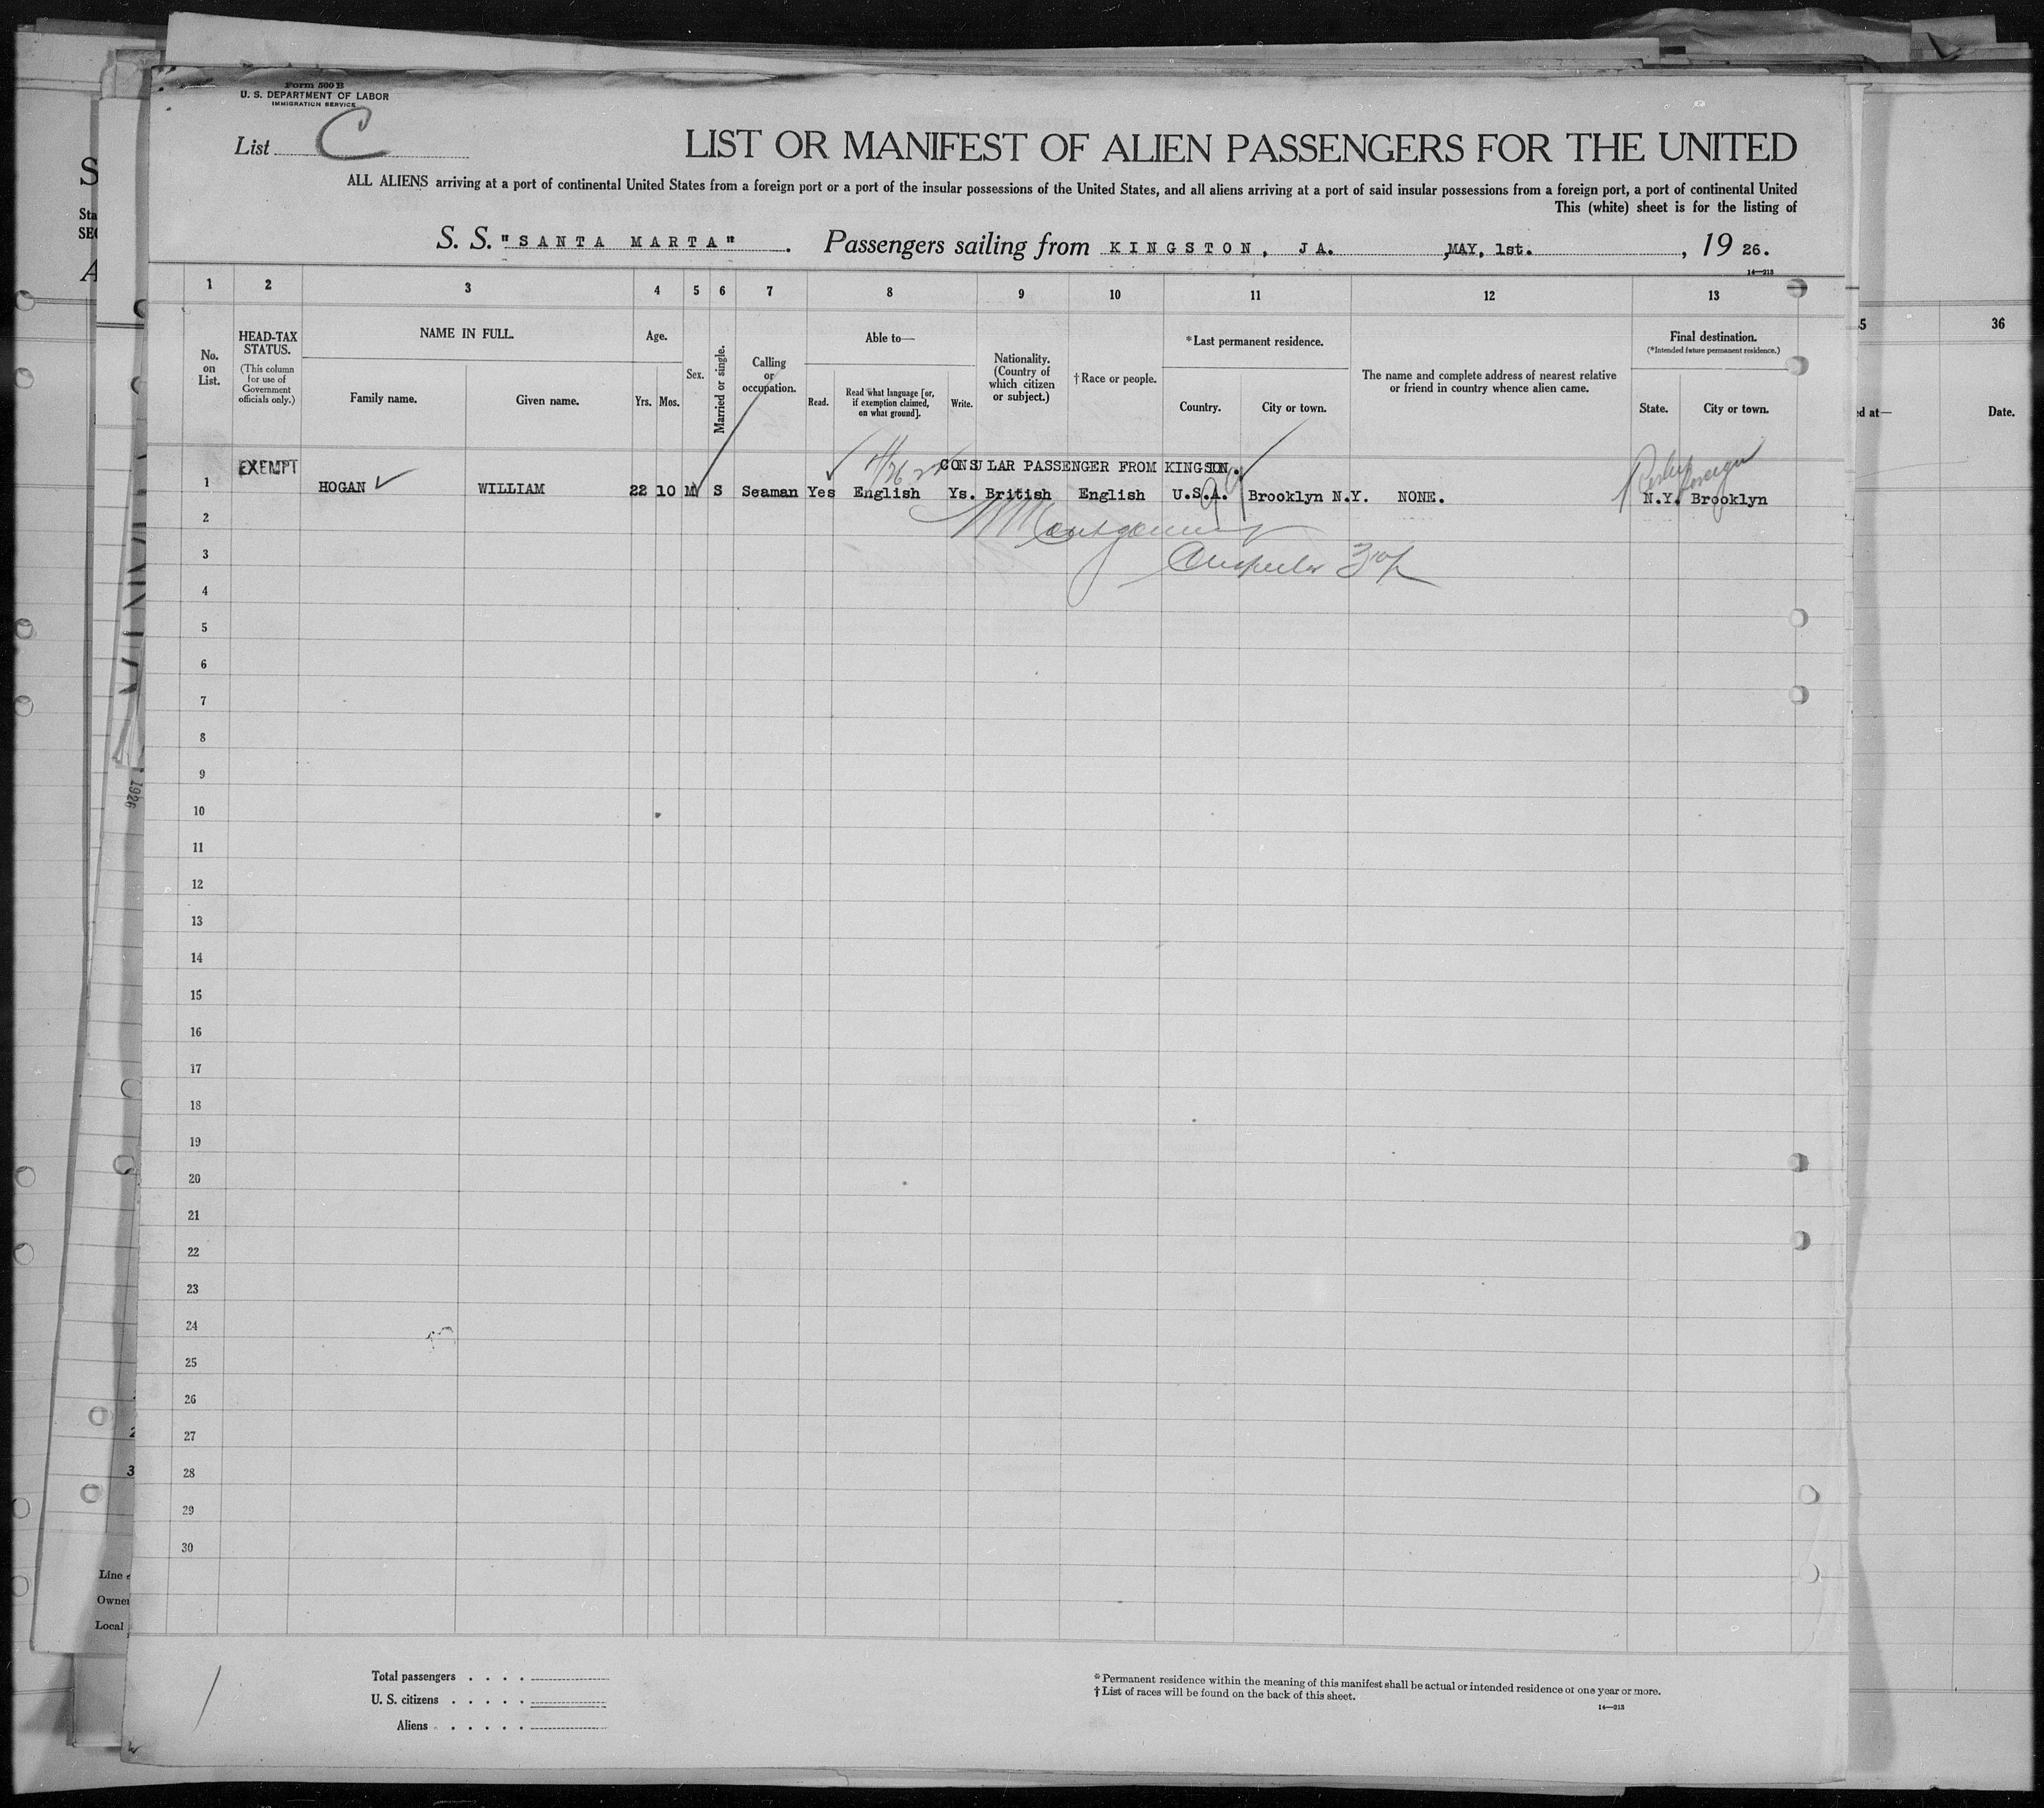 Form 500 B
U. S. DEPARTMENT OF LABOR
IMMIGRATION SERVICE
List C
LIST OR MANIFEST OF ALIEN PASSENGERS FOR THE UNITED
ALL ALIENS arriving at a port of continental United States from a foreign port or a port of the insular possessions of the United States, and all aliens arriving at a port of said insular possessions from a foreign port, a port of continental United
This (white) sheet is for the listing of
S. S. "SANTA MARTA" . Passengers sailing from KINGSTON, JA. ,MAY, 1st. , 19 26.
14—213
1 2 3 4 5 6 7 8 9 10 11 12 13
No. on List.
HEAD-TAX STATUS.
(This column for use of Government officials only.)
NAME IN FULL.
Family name. Given name.
Age.
Yrs. Mos.
Sex.
Married or single.
Calling or occupation.
Able to—
Read. Read what language [or, if exemption claimed, on what ground]. Write.
Nationality. (Country of which citizen or subject.)
† Race or people.
*Last permanent residence.
Country. City or town.
The name and complete address of nearest relative or friend in country whence alien came.
Final destination.
(*Intended future permanent residence.)
State. City or town.
36
Date.
EXEMPT CONSULAR PASSENGER FROM KINGSTON.
1 HOGAN WILLIAM 22 10 M S Seaman Yes English Ys. British English U.S.A. Brooklyn N.Y. NONE. N.Y. Brooklyn
2 Montgomery
3 Inspector
4
5
6
7
8
9
10
11
12
13
14
15
16
17
18
19
20
21
22
23
24
25
26
27
28
29
30
1926
Line
Local
Total passengers . . . .
U. S. citizens . . . . .
Aliens . . . . . .
* Permanent residence within the meaning of this manifest shall be actual or intended residence of one year or more.
† List of races will be found on the back of this sheet.
14—213